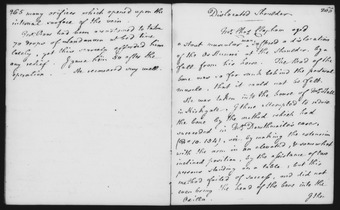 265 many orifices which opened upon the
internal surface of the vein.
Mr had been accustomed to take
70 drops of Laudanum at bed time
lately, yet this scarcely afforded him
any relief. I gave him 80 after the
operation. He recovered very well.
Dislocated Shoulder.
266
Mr Clapham aged
a stout muscular suffered a dislocation
of the Os Humeri at the Shoulder by a
fall from his horse. The Head of the
bone was so far much behind the pectoral
muscle, that it could not be felt.
He was taken into the house of Mr
in Kirkgate. I there attempted to reduce
the bone by the method which had
succeeded in Mr Braithwaite's case,
viz. by making the extension
with the arm in an elevated, & somewhat
inclined position, by the assistance of two
persons standing on a table, but this
method failed of success, and did not
even bring the head of the bone into the
Axilla.
I then